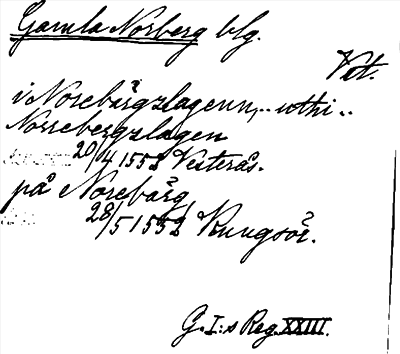 Gamla Norberg blg.
Vst.
i Norebärgzlagenn, .. uthi ..
Norrebergzlagen
20/4 1552 Vesterås.
på Norebärg
28/5 1552 Kungsör.
G. I:s Reg. XXIII.